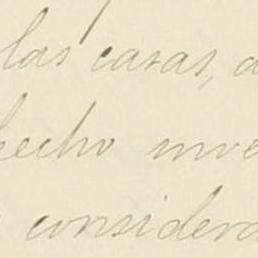 las casas, a
hecho inve
considera